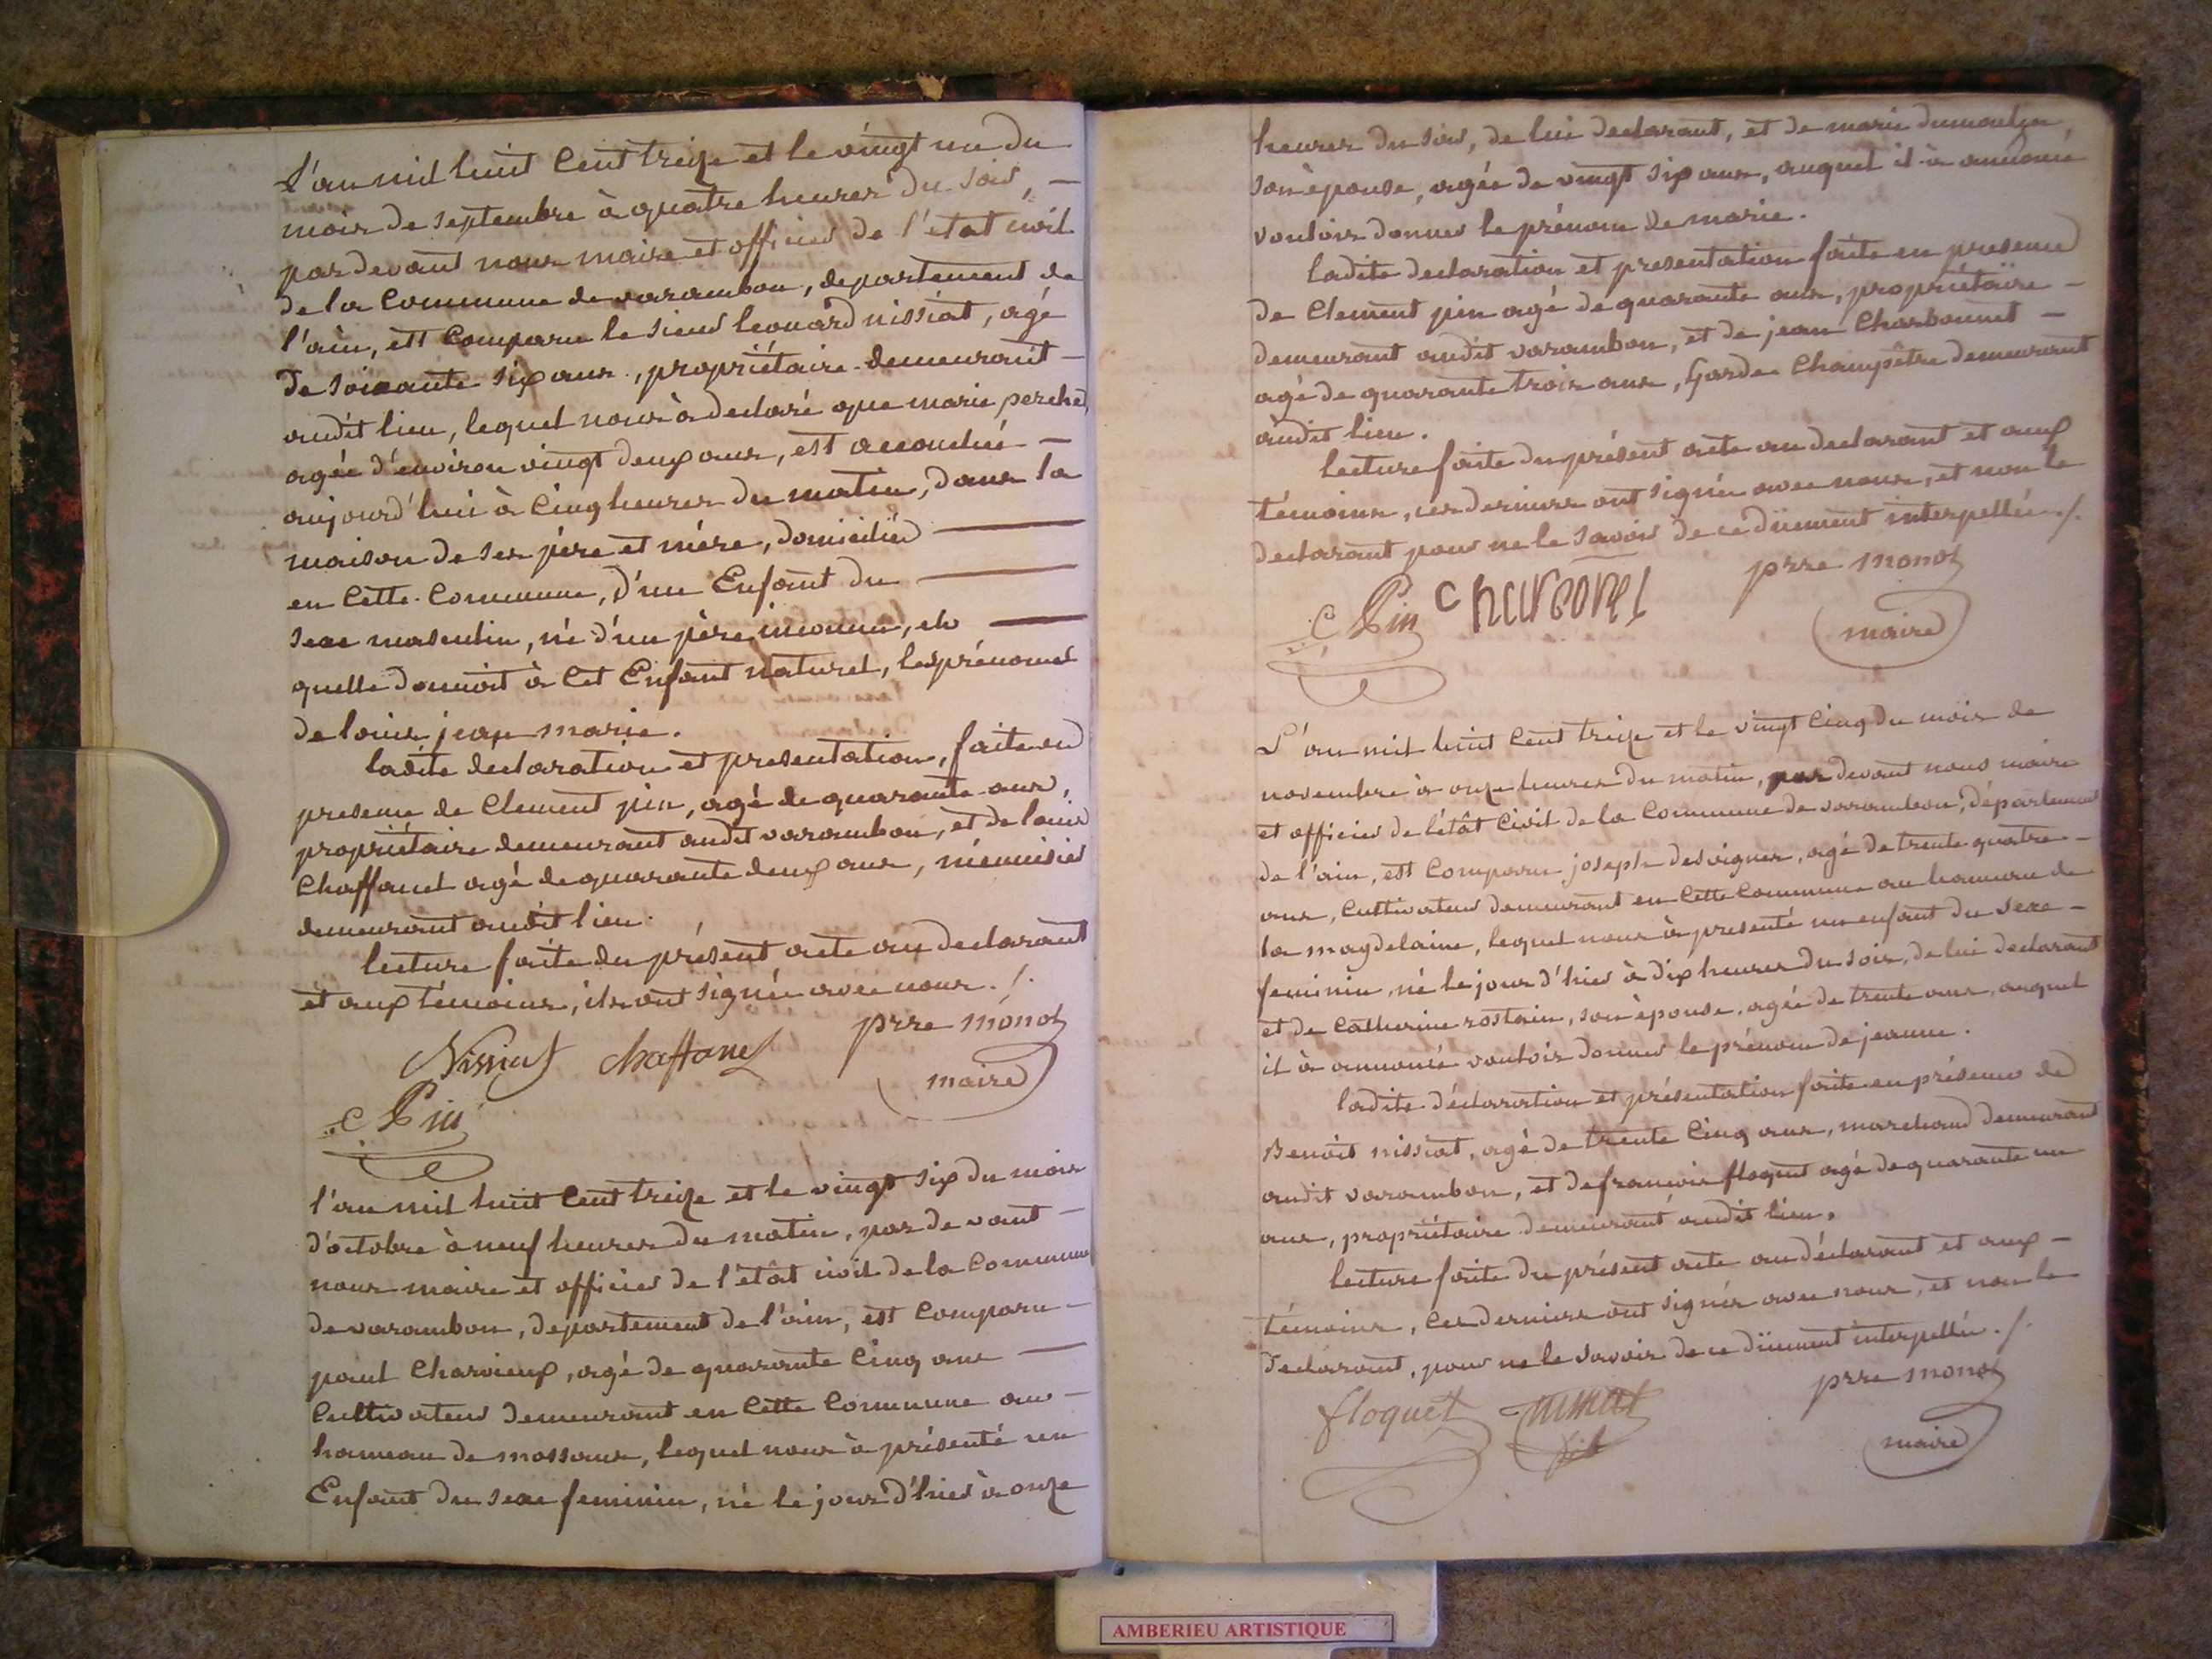 L'an mil huit Cent treize et le vingt un du
mois de septembre à quatre heures du soir, —
pardevant nous maire et officier de l'état civil
de la Commune de varambon, departement de
l'ain, est Comparu le sieur leonard nissiat, agé
de soixante six ans, propriétaire demeurant —
audit lieu, lequel nous à declaré que marie perchet,
agée d'environ vingt deux ans, est accouchée —
aujourd'hui à Cinq heures du matin, dans la
maison de ses père et mère, domiciliés —
en Cette Commune, d'un Enfant du —
sexe masculin, né d'un père inconnu, et —
quelle donnoit à Cet Enfant naturel, les prénoms
de louis jean marie.
ladite declaration et presentation, faite en
presence de Clement pin, agé de quarante ans,
propriétaire demeurant audit varambon, et de louis
Chaffanet agé de quarante deux ans, ménuisier
demeurant audit lieu.
lecture faite du présent acte au declarant
et aux témoins, ils ont signés avec nous ./.
Nissiat chaffanet prre monot
maire
C Pin
l'an mil huit Cent treize et le vingt six du mois
d'octobre à neuf heures du matin, par devant —
nous maire et officier de l'etât civil de la Commune
de varambon, departement de l'ain, est Comparu —
paul Charvieux, agé de quarante Cinq ans —
Cultivateur demeurant en Cette Commune au —
hameau de mossous, lequel nous à présenté un
Enfant du sexe feminin, né le jour d'hier à onze
heures du soir, de lui declarant, et de marie dumoulin,
son épouse, agée de vingt six ans, auquel il à annoncé
vouloir donner le prénom de marie.
ladite declaration et presentation faite en presence
de Clement pin agé de quarante ans, propriétaire —
demeurant audit varambon, et de jean Charbonnet —
agé de quarante trois ans, Garde Champêtre demeurant
audit lieu.
lecture faite du présent acte au declarant et aux
témoins, ces derniers ont signés avec nous, et non le
declarant pour ne le savoir de ce dûement interpellé ./.
C Pin prre monot
maire
L'an mil huit Cent treize et le vingt Cinq du mois de
novembre à onze heures du matin, par devant nous maire
et officier de l'étât Civil de la Commune de varambon, département
de l'ain, est Comparu joseph desvignes, agé de trente quatre —
ans, Cultivateur demeurant en Cette Commune au hameau de
la magdelaine, lequel nous à presenté un enfant du sexe —
feminin, né le jour d'hier à dix heures du soir, de lui declarant
et de Catherine rostain, son épouse, agée de trente ans, auquel
il à annoncé vouloir donner le prénom de jeanne.
ladite déclaration et présentation faite en présence de
Benoit nissiat, agé de trente Cinq ans, marchand demeurant
audit varambon, et de francois floquet agé de quarante un
ans, propriétaire demeurant audit lieu.
lecture faite du présent acte au déclarant et aux —
témoins, Ces derniers ont signés avec nous, et non le
declarant, pour ne le savoir de ce dûement interpellé ./.
floquet nissiat prre monot
fils maire
AMBERIEU ARTISTIQUE